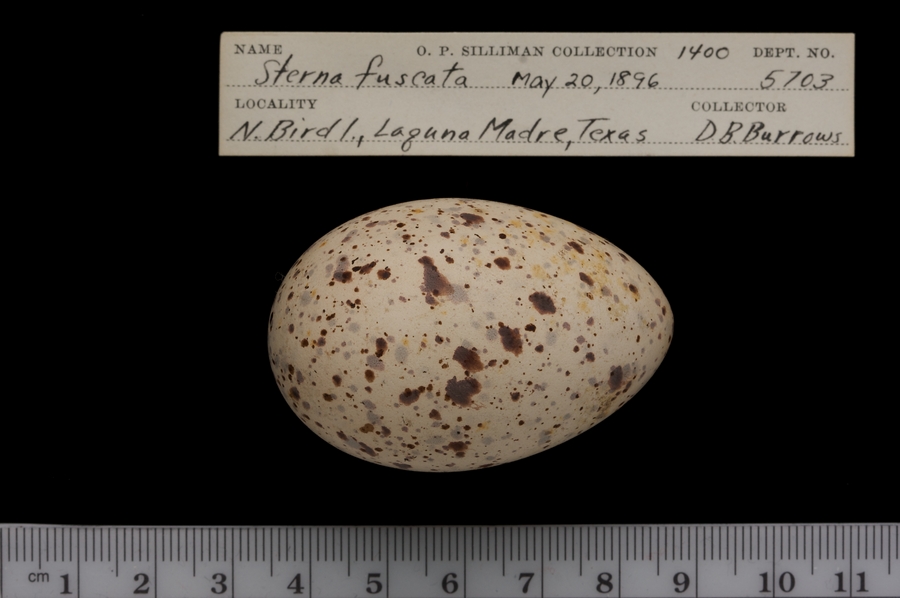 NAME O. P. SILLIMAN COLLECTION 1400 DEPT. NO.
Sterna fuscata May 20, 1896 5703
LOCALITY COLLECTOR
N. Bird I., Laguna Madre, Texas D.B. Burrows
cm 1 2 3 4 5 6 7 8 9 10 11